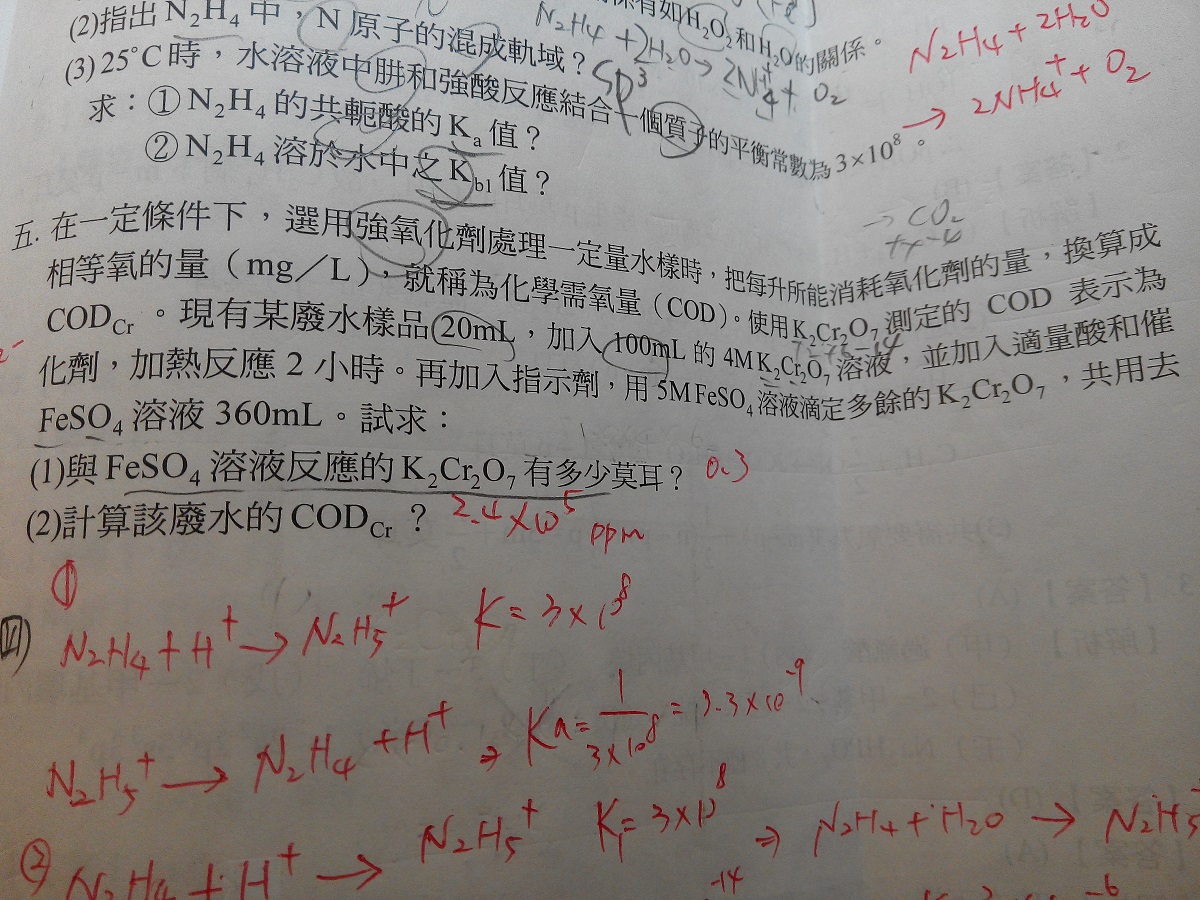 係有如H₂O₂和H₂O的關係。
(2)指出N₂H₄中，N原子的混成軌域？
sp³
N₂H₄ + 2H₂O → 2NH₄⁺ + O₂
N₂H₄ + 2H₂O
→ 2NH₄⁺ + O₂
(3) 25°C時，水溶液中肼和強酸反應結合一個質子的平衡常數為3×10⁸。
求：① N₂H₄的共軛酸的Kₐ值？
② N₂H₄溶於水中之K_b1值？
→ CO₂
五. 在一定條件下，選用強氧化劑處理一定量水樣時，把每升所能消耗氧化劑的量，換算成
相等氧的量（mg／L），就稱為化學需氧量（COD）。使用K₂Cr₂O₇測定的 COD 表示為
COD_Cr。現有某廢水樣品20mL，加入100mL的4M K₂Cr₂O₇溶液，並加入適量酸和催
化劑，加熱反應2小時。再加入指示劑，用5M FeSO₄溶液滴定多餘的K₂Cr₂O₇，共用去
FeSO₄溶液360mL。試求：
(1)與FeSO₄溶液反應的K₂Cr₂O₇有多少莫耳？ 0.3
(2)計算該廢水的COD_Cr？ 2.4×10⁵ ppm
①
四) N₂H₄ + H⁺ → N₂H₅⁺ K = 3×10⁸
N₂H₅⁺ → N₂H₄ + H⁺ ⇒ Ka = 1/3×10⁸ = 3.3×10⁻⁹
② N₂H₄ + H⁺ → N₂H₅⁺ K₁ = 3×10⁸ ⇒ N₂H₄ + H₂O → N₂H₅